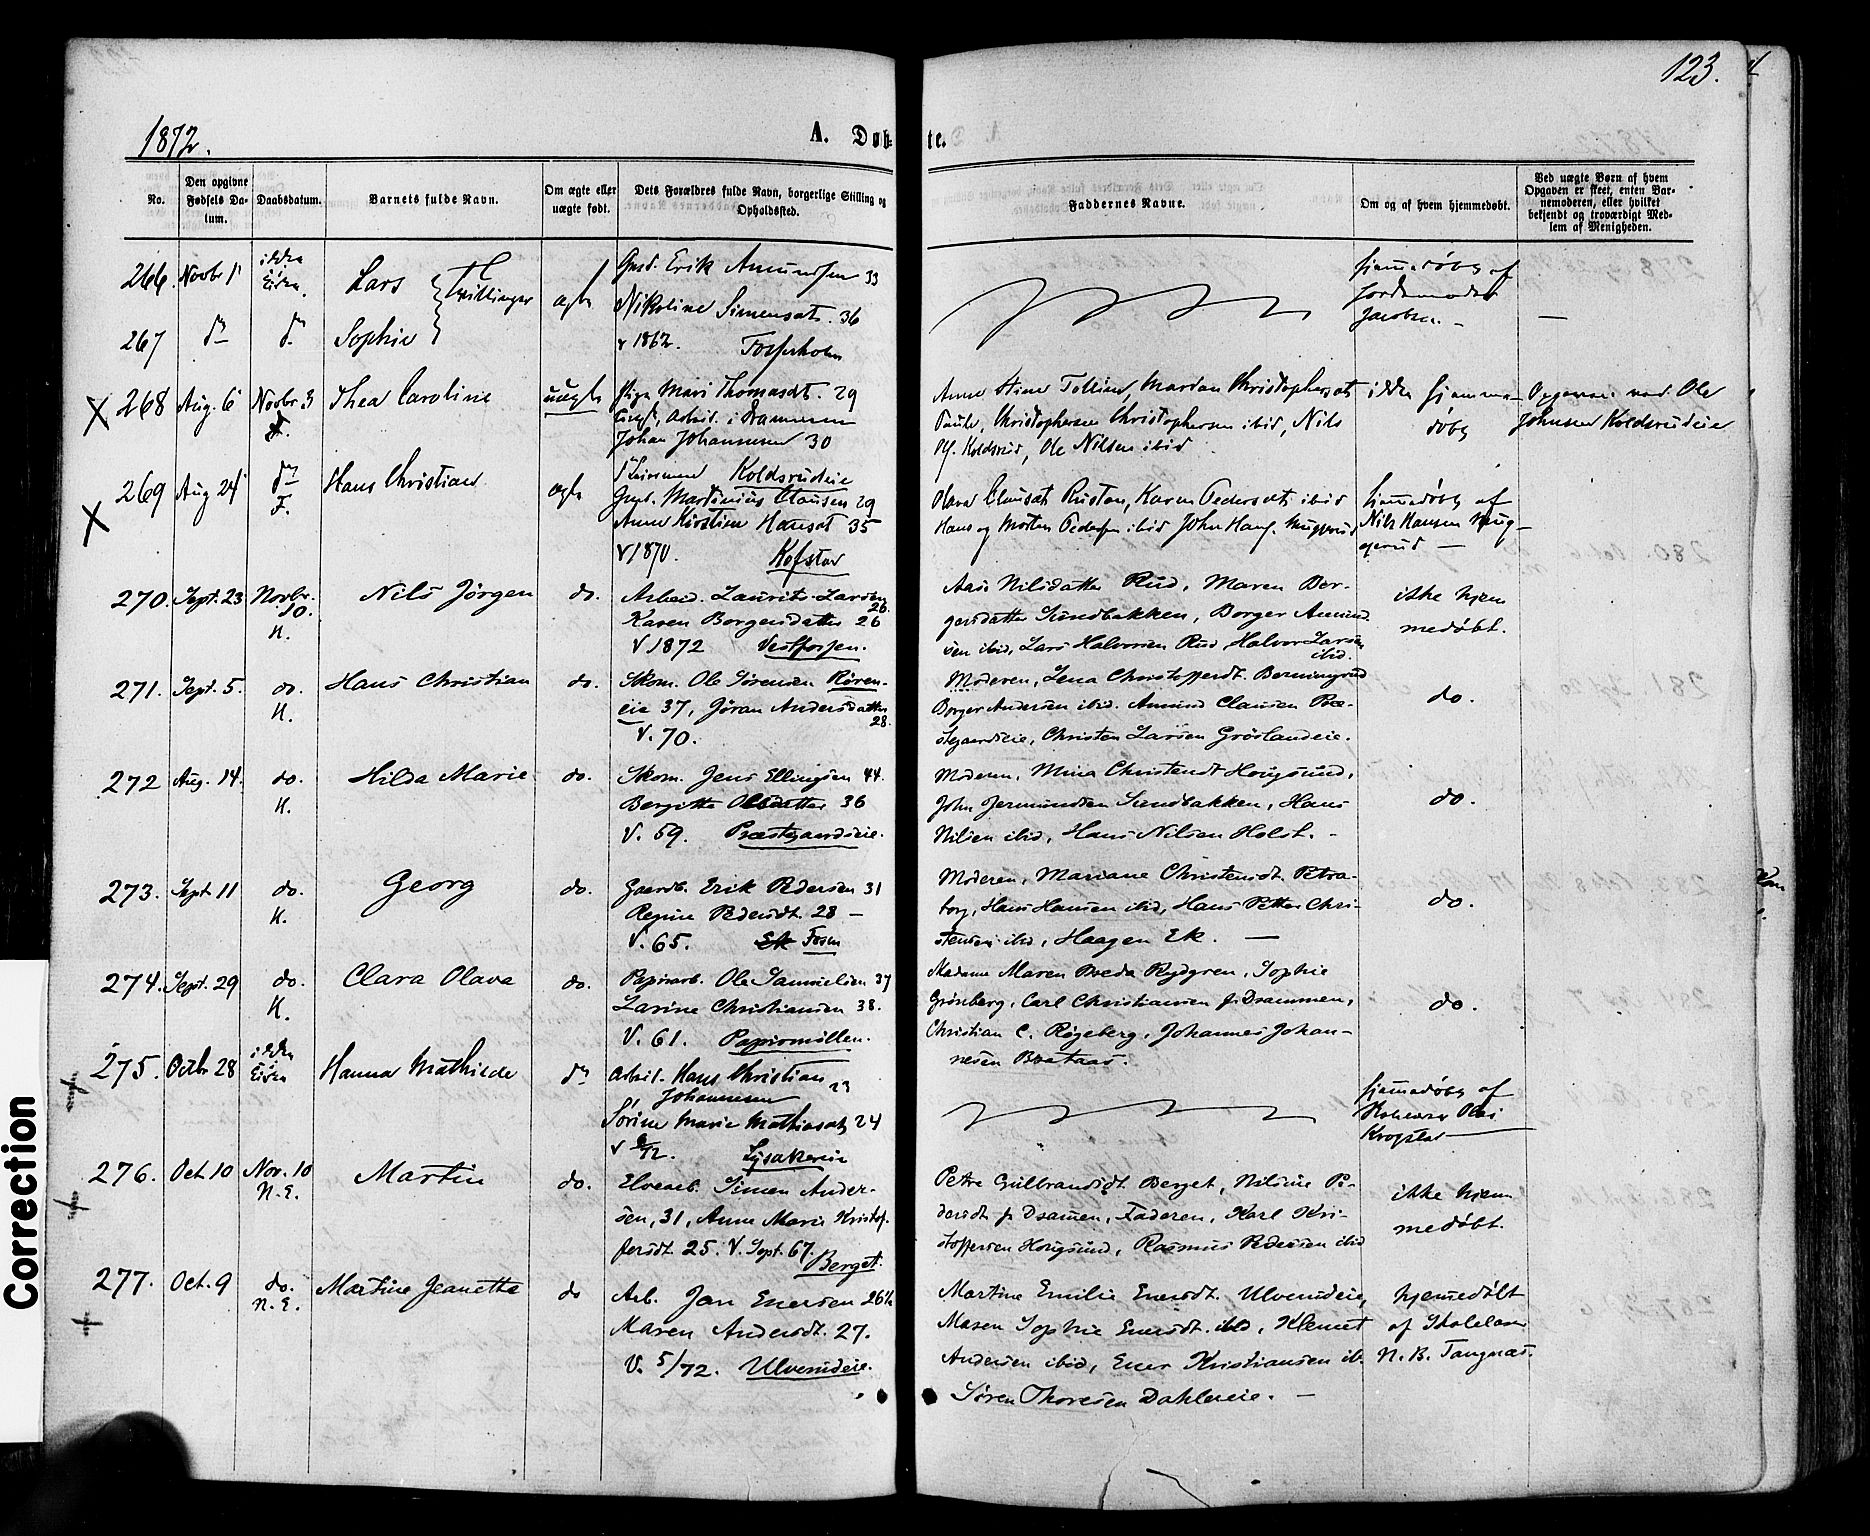 123.
1872.
A. Døbte.
No.
Den opgivne Fødsels Datum.
Daabsdatum.
Barnets fulde Navn.
Om ægte eller uægte født.
Dets Forældres fulde Navn, borgerlige Stilling og Opholdssted.
Faddernes Navne.
Om og af hvem hjemmedøbt.
Ved uægte Børn af hvem Opgaven er skeet, enten Barnemoderen, eller hvilket bekjendt og troværdigt Medlem af Menigheden.
266. Novbr 1 Lars Tvillinger ægte
Erik Amundsen 33
Nikoline Simensdt. 36
v 1862. Fosserholm
hjemmedøbt af
Jordemoder
Jacobsen. –
267 do do Sophie
X 268 Aug. 6 Novbr 3 F. Thea Caroline uægte
Pige Mari Thomasdt. 29
Johan Johannesen 30
Koldsrudeie
Christophersen Christophersen ibid, Nils
Koldsrud, Ole Nilsen ibid
ikke hjemmedøbt
Ole
Johnsen Koldsrudeie
X 269 Aug 24 do F. Hans Christian ægte
Martinius Clausen 29
Anne Kirstine Hansdt 35
v 1870. Kofstad
Hans og Morten Pedersen ibid John Hans.
hjemmedøbt af
Nils Hansen
270. Sept. 23 Novbr. 10. H. Nils Jørgen do.
Arbeid. Laurits Larsen 26
Karen Borgersdatter 26
V 1872 Vestfossen.
Aase Nilsdatter Rud, Maren Bor-
gersdatter Sundbakken, Borger Amund
sen ibid, Lars Halvorsen Rud, Halvor Larsen
ibid.
ikke hjem
medøbt.
271. Sept. 5. do. H. Hans Christian do.
Skom. Ole Sørensen Røren-
eie 37, Jøran Andersdatter
28.
V. 70.
Moderen, Lena Christoffersdt. Berningrud
Borger Andersen ibid. Amund Clausen Præ-
stegaardseie, Christen Larsen Grøslandeie.
do.
272 Aug. 14. do. H. Hilda Marie do.
Skom. Jens Ellingsen 44.
Bergitte Olsdatter 36
V. 59. Præstegaardseie.
Moderen, Mina Christensdt Hougsund,
John Jermundsen Sundbakken, Hans
Nilsen ibid, Hans Nilsen Holst. –
do.
273. Sept 11 do. H. Georg do.
Gaardb. Erik Pedersen 31
Regine Pedersdt. 28 –
V. 65. Ek Fosen
Moderen, Mariane Christensdt. Petra-
borg, Hans Hansen ibid, Hans Petter Chri-
stensen ibid, Haagen Ek. –
do.
274. Sept. 29 do. H. Clara Olava do.
Papirarb. Ole Samuelsen 37
Larine Christiansen 38.
V. 61. Papirmøllen.
Madame Maren Breda Rydgren, Sophie
Grønberg, Carl Christiansen fr Drammen,
Christian C. Røgeberg, Johannes Johan-
nesen Braataas.
do.
275. Octbr 28 Hanna Mathilde do
Arbeid. Hans Christian
Johannesen 23
Sørine Marie Mathiasdt 24
hjemmedøbt af
Krogstad
276. Oct. 10 Nov. 10 N. E. Martin do.
Elvearb. Simen Ander-
sen, 31, Anne Marie Kristof-
fersdt 25. V. Sept. 67.
Berget.
Petre Gulbrandsdt Berget, Nilsine Pe-
dersdt fr Dramen, Faderen, Karl Kri-
stoffersen Hougsund, Rasmus Pedersen ibid
ikke hjem
medøbt.
277. Oct. 9 do. N. E. Martine Jeanette do
Arb. Jan Enersen 26½
Maren Andersdt. 27.
V. 5/72. Ulverudeie.
Martine Emilie Enersdt. Ulverudeie,
Maren Sophie Enersdt. ibid, Klemet
Andersen ibid, Ener Kristiansen ib.
Søren Thoresen Dahlereie. –
hjemmedøbt
af Skolelærer
N. B. Tangnæs.
Correction